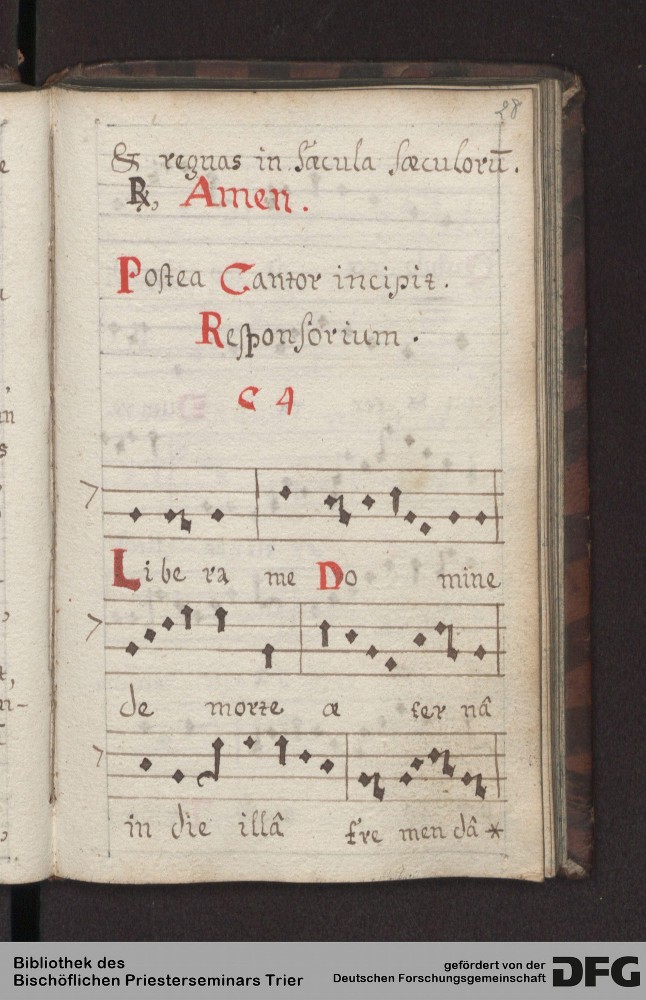 28
& regnas in sæcula sæculorū.
℟, Amen.
Postea Cantor incipit.
Responsorium.
C 4
Libera me Do mine
de morte æ ter nâ
in die illâ tre men dâ *
Bibliothek des
Bischöflichen Priesterseminars Trier
gefördert von der
Deutschen Forschungsgemeinschaft
DFG